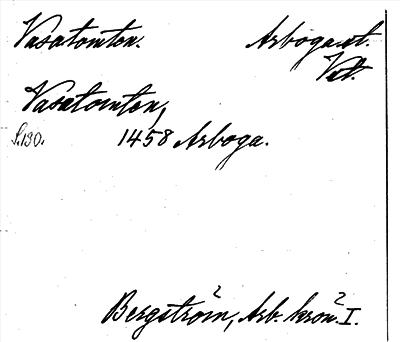 Vasatomten. Arboga st.
Vstl.
Vasatomten,
S.190. 1458 Arboga.
Bergström, Arb. krön. I.